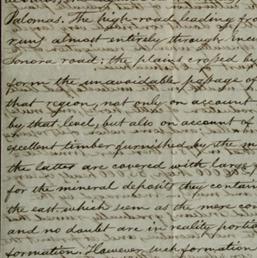 Palomas. The high-road leading fro
runs almost entirely through
Sonora road; the plains crossed by
form the unavoidable passage of
that region, not only on account
by that level, but also on account of
excellent timber furnished by the m
the latter are covered with large
for the mineral deposits they contain
the east which seem as the mere con
and no doubt are in reality portio
formation. However such formation